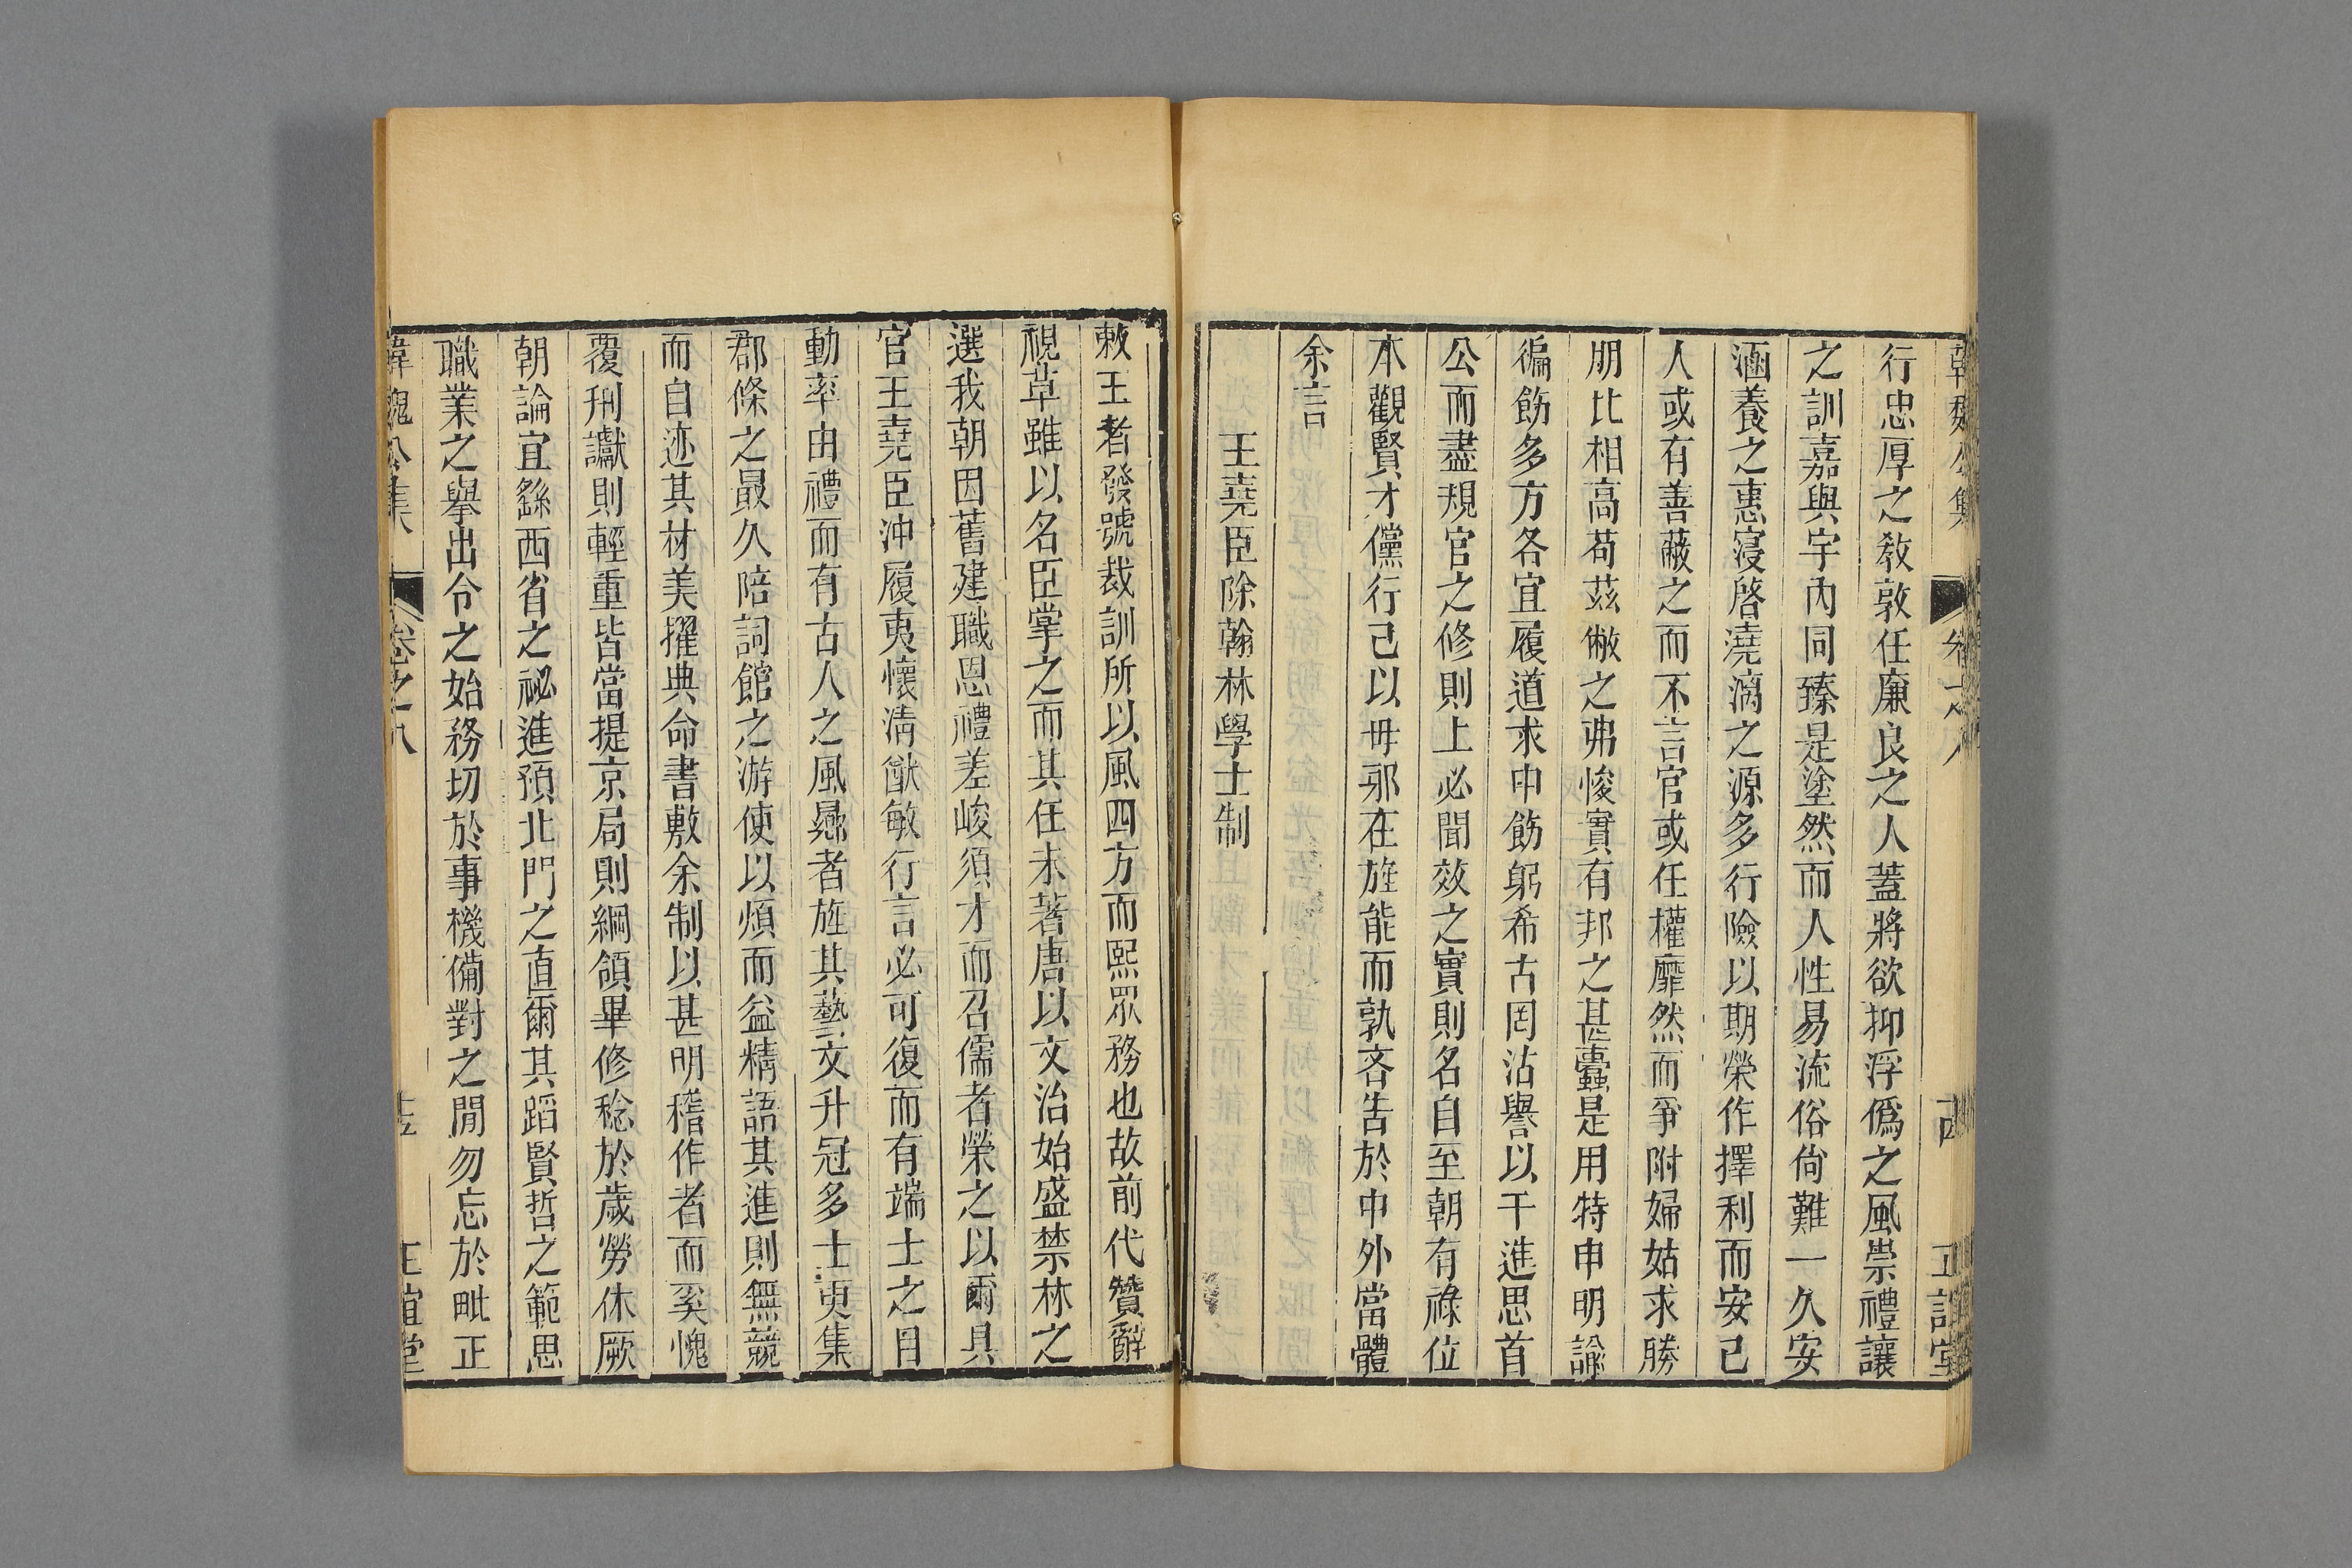 韓魏公集 卷之八 十四 正誼堂
行忠厚之教敦任廉良之人蓋將欲抑浮僞之風崇禮讓
之訓嘉與宇內同臻是塗然而人性易流俗尙難一久安
涵養之恵寖啓澆漓之源多行險以期榮作擇利而安己
人或有善蔽之而不言官或任權靡然而爭附婦姑求勝
朋比相高苟茲儆之弗悛實有邦之甚蠹是用特申明諭
徧飭多方各宜履道求中飭躬希古罔沽譽以干進思首
公而盡規官之修則上必聞效之實則名自至朝有祿位
本觀賢才儻行己以毋邪在旌能而孰吝告於中外當體
余言
王堯臣除翰林學士制
敕王者發號裁訓所以風四方而熙眾務也故前代贊辭
視草雖以名臣掌之而其任未著唐以文治始盛禁林之
選我朝因舊建職恩禮差峻須才而召儒者榮之以爾具
官王堯臣沖履夷懷淸猷敏行言必可復而有端士之目
動率由禮而有古人之風曏者旌其藝文升冠多士更集
郡條之最久陪詞館之游使以煩而益精語其進則無競
而自迹其材美擢典命書敷余制以甚明稽作者而奚愧
覆刑讞則輕重皆當提京局則綱領畢修稔於歲勞休厥
朝論宜繇西省之祕進預北門之直爾其蹈賢哲之範思
職業之舉出令之始務切於事機備對之閒勿忘於毗正
韓魏公集 卷之八 十五 正誼堂